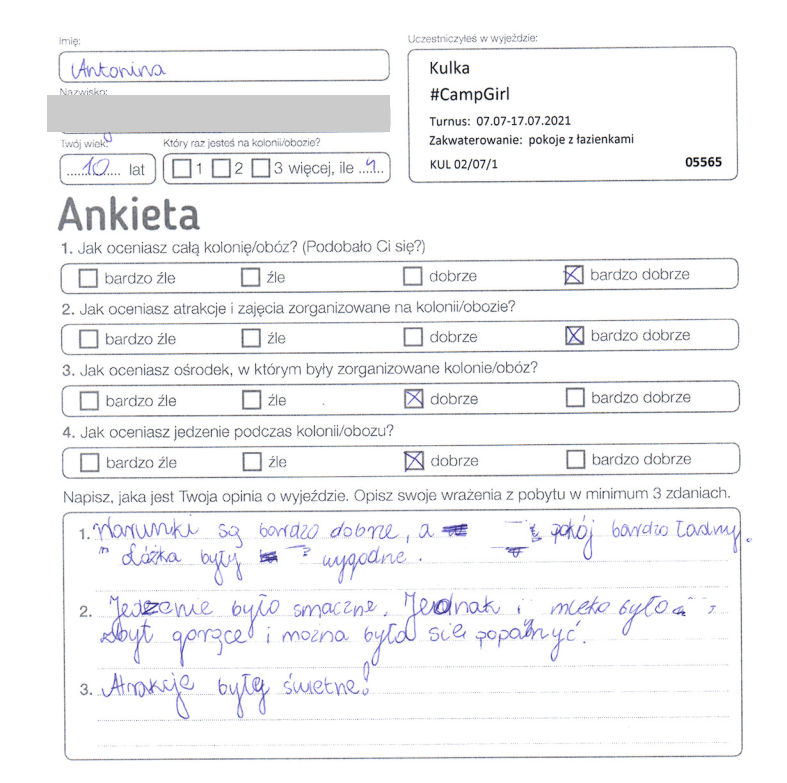 Imię:
Antonina
Uczestniczyłeś w wyjeździe:
Kulka
#CampGirl
Turnus: 07.07-17.07.2021
Zakwaterowanie: pokoje z łazienkami
KUL 02/07/1 05565
Nazwisko:
Twój wiek:
10 lat
Który raz jesteś na kolonii/obozie?
1 2 3 więcej, ile
Ankieta
1. Jak oceniasz całą kolonię/obóz? (Podobało Ci się?)
bardzo źle źle dobrze bardzo dobrze
2. Jak oceniasz atrakcje i zajęcia zorganizowane na kolonii/obozie?
bardzo źle źle dobrze bardzo dobrze
3. Jak oceniasz ośrodek, w którym były zorganizowane kolonie/obóz?
bardzo źle źle dobrze bardzo dobrze
4. Jak oceniasz jedzenie podczas kolonii/obozu?
bardzo źle źle dobrze bardzo dobrze
Napisz, jaka jest Twoja opinia o wyjeździe. Opisz swoje wrażenia z pobytu w minimum 3 zdaniach.
1. Warunki są bardzo dobre, a pokój bardzo ładny.
Łóżka były wygodne.
2. Jedzenie było smaczne. Jednak i mleko było
zbyt gorące i można było się popażyć.
3. Atrakcje były świetne!